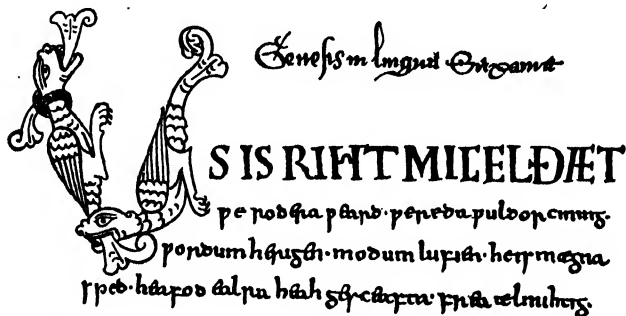 Genesis in lingua Saxania
US IS RIHT MICEL ÐÆT
ƿe rodera ƿeard· ƿereda ƿuldorcining·
ƿordum herigen· modum lufien· heis mægna
sped· heafod ealra heah gesceafta· frea ælmihtig·